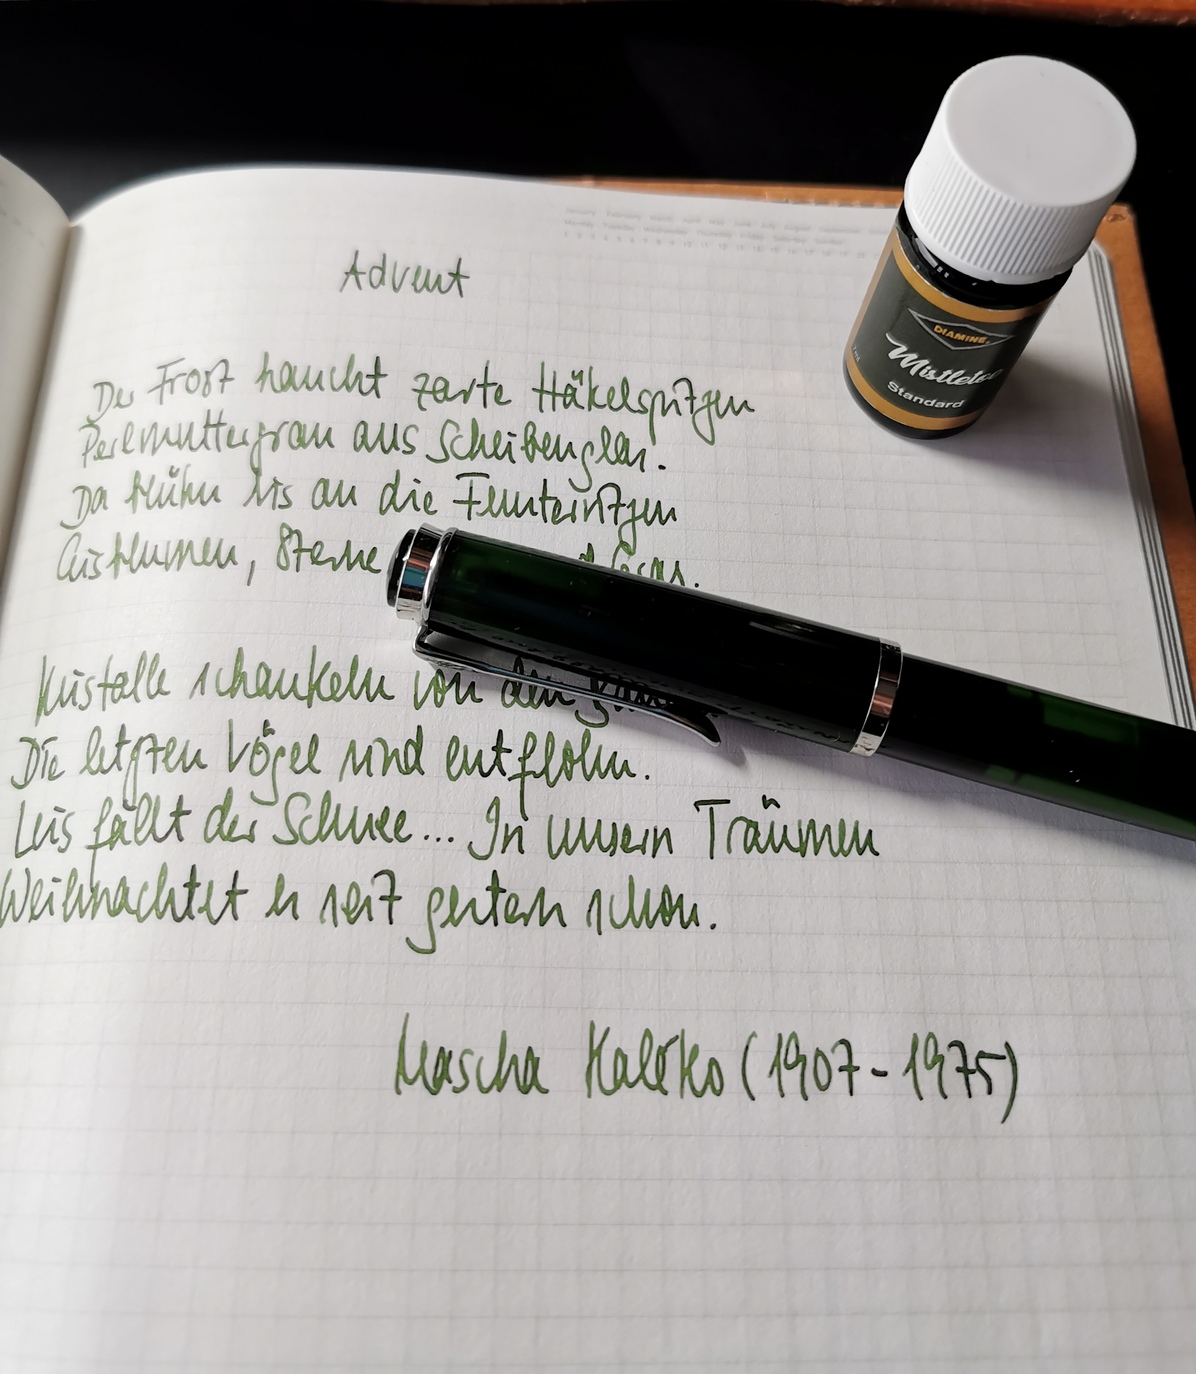 Advent
Der Frost haucht zarte Häkelspitzen
Perlmuttergrau ans Scheibenglas.
Da blühn bis an die Fensterritzen
Eisblumen, Sterne Gras.
Kristalle schaukeln von den
Die letzten Vögel sind entflohn.
Leis fällt der Schnee... In unsern Träumen
Weihnachtet es seit gestern schon.
Mascha Kaléko (1907-1975)
DIAMINE
Mistletoe
Standard